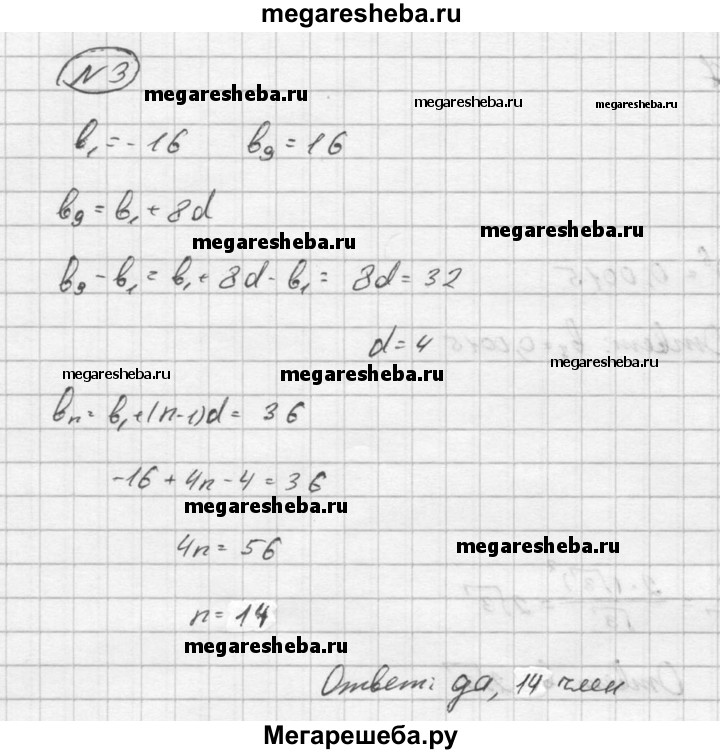 megaresheba.ru
N 3
megaresheba.ru megaresheba.ru megaresheba.ru
b₁ = - 16 b₉ = 16
b₉ = b₁ + 8d
megaresheba.ru megaresheba.ru
b₉ - b₁ = b₁ + 8d - b₁ = 8d = 32
d = 4
megaresheba.ru megaresheba.ru megaresheba.ru
bₙ = b₁ + (n-1)d = 36
-16 + 4n - 4 = 36
megaresheba.ru
4n = 56
megaresheba.ru
n = 14
megaresheba.ru
Ответ: да, 14 член
Мегарешеба.ру